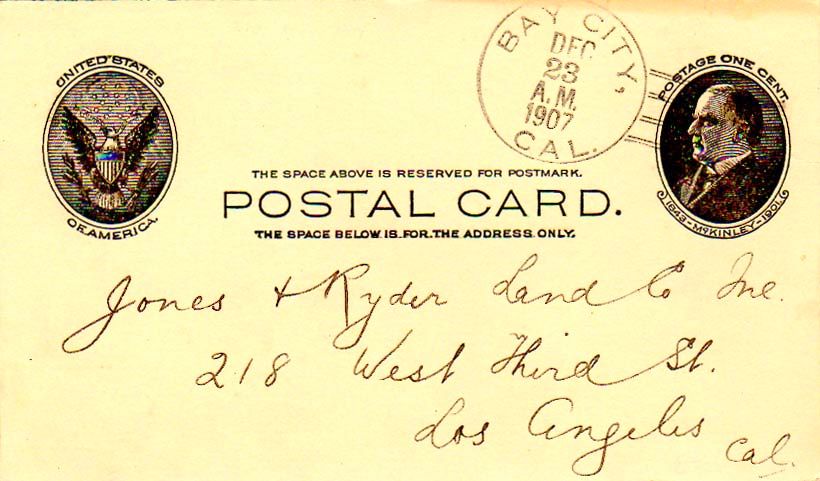 BAY CITY,
DEC
23
A.M.
1907
CAL.
UNITED STATES
OF AMERICA.
POSTAGE ONE CENT.
1843-McKINLEY-1901.
THE SPACE ABOVE IS RESERVED FOR POSTMARK.
POSTAL CARD.
THE SPACE BELOW IS FOR THE ADDRESS ONLY.
Jones & Ryder Land Co Inc.
218 West Third St.
Los Angeles
Cal.